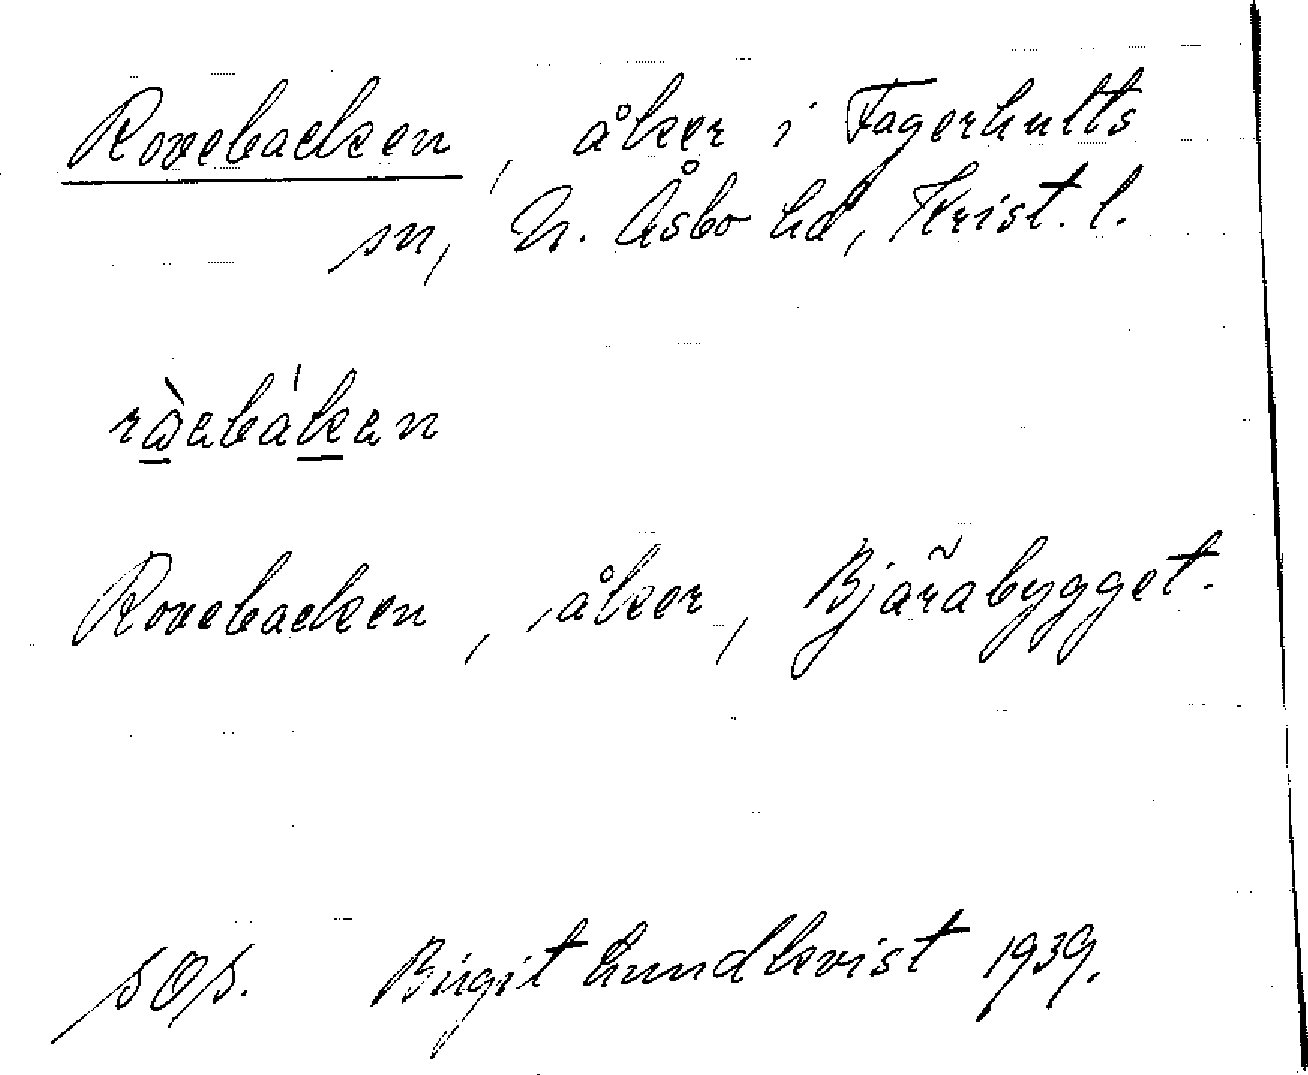 Rovebacken, åker i Fagerhults
sn, N. Åsbo hd, Krist. l.
Rovebacken, åker, Bjärabygget.
Birgit Lundkvist 1939.